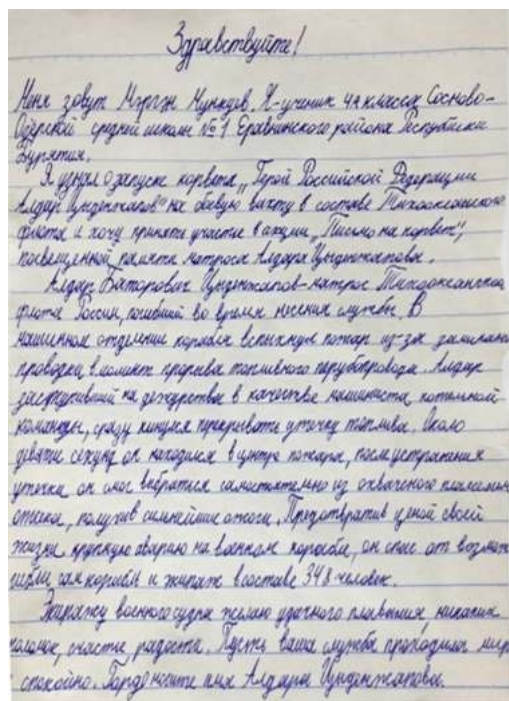 Здравствуйте!
Меня зовут Мэргэн Мункуев. Я-ученик 4а класса Сосново-
Озёрской средней школы №1 Еравнинского района Республики
Бурятия.
Я узнал о запуске корвета „Герой Российской Федерации
Алдар Цыденжапов" на боевую вахту в составе Тихоокеанского
флота и хочу принять участие в акции „Письмо на корвет",
посвященной памяти матроса Алдара Цыденжапова.
Алдар Баторович Цыденжапов-матрос Тихоокеанского
флота России, погибший во время несения службы. В
машинном отделении корабля вспыхнул пожар из-за замыкания
проводки в момент прорыва топливного трубопровода. Алдар
заступивший на дежурство в качестве машиниста котельной
команды, сразу кинулся перекрывать утечку топлива. Около
девяти секунд он находился в центре пожара, после устранения
утечки он смог выбраться самостоятельно из охваченого пламенем
отсека, получив сильнейшие ожоги. Предотвратив ценой своей
жизни крупную аварию на военном корабле, он спас от возмож
гибели сам корабль и экипаж в составе 348 человек.
Экипажу военного судна желаю удачного плавания, никаких
поломок, счастье радости. Пусть ваша служба проходила мир
спокойно. Гордо носите имя Алдара Цыденжапова.